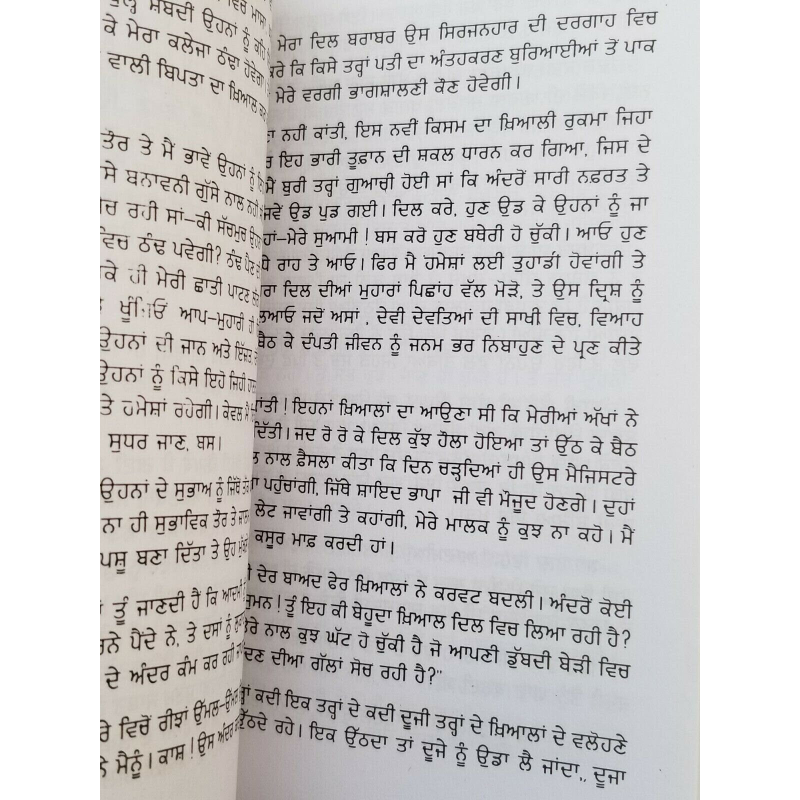 ਸਬੰਦੀ ਉਹਨਾਂ ਨੂੰ ਕਹਿ
ਕੇ ਮੇਰਾ ਕਲੇਜਾ ਠੰਢਾ ਹੋਵੇਗਾ
ਵਾਲੀ ਬਿਪਤਾ ਦਾ ਖ਼ਿਆਲ
ਤੌਰ ਤੇ ਮੈਂ ਭਾਵੇਂ ਉਹਨਾਂ ਨੂੰ
ਸੇ ਬਨਾਵਨੀ ਗੁੱਸੇ ਨਾਲ ਨਹੀਂ
ਰਹੀ ਸਾਂ–ਕੀ ਸੱਚਮੁਚ
ਵਿਚ ਠੰਢ ਪਵੇਗੀ? ਠੰਢ ਪੈਣ
ਕੇ ਹੀ ਮੇਰੀ ਛਾਤੀ ਪਾਟਣ
ਆਪ-ਮੁਹਾਰੀ ਹੀ
ਉਹਨਾਂ ਦੀ ਜਾਨ ਅਤੇ ਇੱਜ਼ਤ
ਉਹਨਾਂ ਨੂੰ ਕਿਸੇ ਇਹੋ ਜਿਹੀ
ਤੇ ਹਮੇਸ਼ਾਂ ਰਹੇਗੀ। ਕੇਵਲ ਮੈਂ
ਸੁਧਰ ਜਾਣ, ਬਸ।
ਉਹਨਾਂ ਦੇ ਸੁਭਾਅ ਨੂੰ ਜਿੱਥੋਂ ਤੱਕ
ਨਾ ਹੀ ਸੁਭਾਵਿਕ ਤੌਰ ਤੇ
ਪਸ਼ੂ ਬਣਾ ਦਿੱਤਾ ਤੇ ਉਹ
ਤੂੰ ਜਾਣਦੀ ਹੈਂ ਕਿ ਆਦਮੀ
ਪੈਂਦੇ ਨੇ, ਤੇ ਦਸਾਂ ਨੂੰ
ਦੇ ਅੰਦਰ ਕੰਮ ਕਰ ਰਹੀ
ਰੇ ਵਿਚੋਂ ਰੀਝਾਂ ਉੱਮਲ-ਉਮਲ
ਮੈਨੂੰ। ਕਾਸ਼! ਉਸ ਅੰਦਰ
ਮੇਰਾ ਦਿਲ ਬਰਾਬਰ ਉਸ ਸਿਰਜਨਹਾਰ ਦੀ ਦਰਗਾਹ ਵਿਚ
ਕਰੇ ਕਿ ਕਿਸੇ ਤਰ੍ਹਾਂ ਪਤੀ ਦਾ ਅੰਤਹਕਰਣ ਬੁਰਿਆਈਆਂ ਤੋਂ ਪਾਕ
ਮੇਰੇ ਵਰਗੀ ਭਾਗਸ਼ਾਲਣੀ ਕੌਣ ਹੋਵੇਗੀ।
ਨਹੀਂ ਕਾਂਤੀ, ਇਸ ਨਵੀਂ ਕਿਸਮ ਦਾ ਖ਼ਿਆਲੀ ਰੁਕਮਾ ਜਿਹਾ
ਇਹ ਭਾਰੀ ਤੂਫ਼ਾਨ ਦੀ ਸਕਲ ਧਾਰਨ ਕਰ ਗਿਆ, ਜਿਸ ਦੇ
ਮੈਂ ਬੁਰੀ ਤਰ੍ਹਾਂ ਗੁਆਚੀ ਹੋਈ ਸਾਂ ਕਿ ਅੰਦਰੋਂ ਸਾਰੀ ਨਫ਼ਰਤ ਤੇ
ਜਵੇਂ ਉਡ ਪੁਡ ਗਈ। ਦਿਲ ਕਰੇ, ਹੁਣ ਉਡ ਕੇ ਉਹਨਾਂ ਨੂੰ ਜਾ
ਹਾਂ–ਮੇਰੇ ਸੁਆਮੀ! ਬਸ ਕਰੋ ਹੁਣ ਬਥੇਰੀ ਹੋ ਚੁੱਕੀ। ਆਓ ਹੁਣ
ਧੇ ਰਾਹ ਤੇ ਆਓ। ਫਿਰ ਮੈਂ ਹਮੇਸ਼ਾਂ ਲਈ ਤੁਹਾਡੀ ਹੋਵਾਂਗੀ ਤੇ
ਰਾ ਦਿਲ ਦੀਆਂ ਮੁਹਾਰਾਂ ਪਿਛਾਂਹ ਵੱਲ ਮੋੜੋ, ਤੇ ਉਸ ਦ੍ਰਿਸ਼ ਨੂੰ
ਲਆਓ ਜਦੋਂ ਅਸਾਂ, ਦੇਵੀ ਦੇਵਤਿਆਂ ਦੀ ਸਾਖੀ ਵਿਚ, ਵਿਆਹ
ਬੈਠ ਕੇ ਦੰਪਤੀ ਜੀਵਨ ਨੂੰ ਜਨਮ ਭਰ ਨਿਬਾਹੁਣ ਦੇ ਪ੍ਰਣ ਕੀਤੇ
ਕਾਂਤੀ! ਇਹਨਾਂ ਖ਼ਿਆਲਾਂ ਦਾ ਆਉਣਾ ਸੀ ਕਿ ਮੇਰੀਆਂ ਅੱਖਾਂ ਨੇ
ਦਿੱਤੀ। ਜਦ ਰੋ ਰੋ ਕੇ ਦਿਲ ਕੁੱਝ ਹੌਲਾ ਹੋਇਆ ਤਾਂ ਉੱਠ ਕੇ ਬੈਠ
ਨਾਲ ਫ਼ੈਸਲਾ ਕੀਤਾ ਕਿ ਦਿਨ ਚੜ੍ਹਦਿਆਂ ਹੀ ਉਸ ਮੈਜਿਸਟਰੇ
ਪਹੁੰਚਾਂਗੀ, ਜਿੱਥੇ ਸ਼ਾਇਦ ਭਾਪਾ ਜੀ ਵੀ ਮੌਜੂਦ ਹੋਣਗੇ। ਦੁਹਾਂ
ਲੇਟ ਜਾਵਾਂਗੀ ਤੇ ਕਹਾਂਗੀ, ਮੇਰੇ ਮਾਲਕ ਨੂੰ ਕੁਝ ਨਾ ਕਹੋ। ਮੈਂ
ਕਸੂਰ ਮਾਫ਼ ਕਰਦੀ ਹਾਂ।
ਦੇਰ ਬਾਅਦ ਫੇਰ ਖ਼ਿਆਲਾਂ ਨੇ ਕਰਵਟ ਬਦਲੀ। ਅੰਦਰੋਂ ਕੋਈ
ਸੁਮਨ! ਤੂੰ ਇਹ ਕੀ ਬੇਹੂਦਾ ਖ਼ਿਆਲ ਦਿਲ ਵਿਚ ਲਿਆ ਰਹੀ ਹੈ?
ਰੇ ਨਾਲ ਕੁਝ ਘੱਟ ਹੋ ਚੁੱਕੀ ਹੈ ਜੋ ਆਪਣੀ ਡੁੱਬਦੀ ਬੇੜੀ ਵਿਚ
ਦਣ ਦੀਆ ਗੱਲਾਂ ਸੋਚ ਰਹੀ ਹੈਂ?”
ਕਦੀ ਇਕ ਤਰ੍ਹਾਂ ਦੇ ਕਦੀ ਦੂਜੀ ਤਰ੍ਹਾਂ ਦੇ ਖ਼ਿਆਲਾਂ ਦੇ ਵਲੋਹਣੇ
ਉੱਠਦੇ ਰਹੇ। ਇਕ ਉੱਠਦਾ ਤਾਂ ਦੂਜੇ ਨੂੰ ਉਡਾ ਲੈ ਜਾਂਦਾ,. ਦੂਜਾ